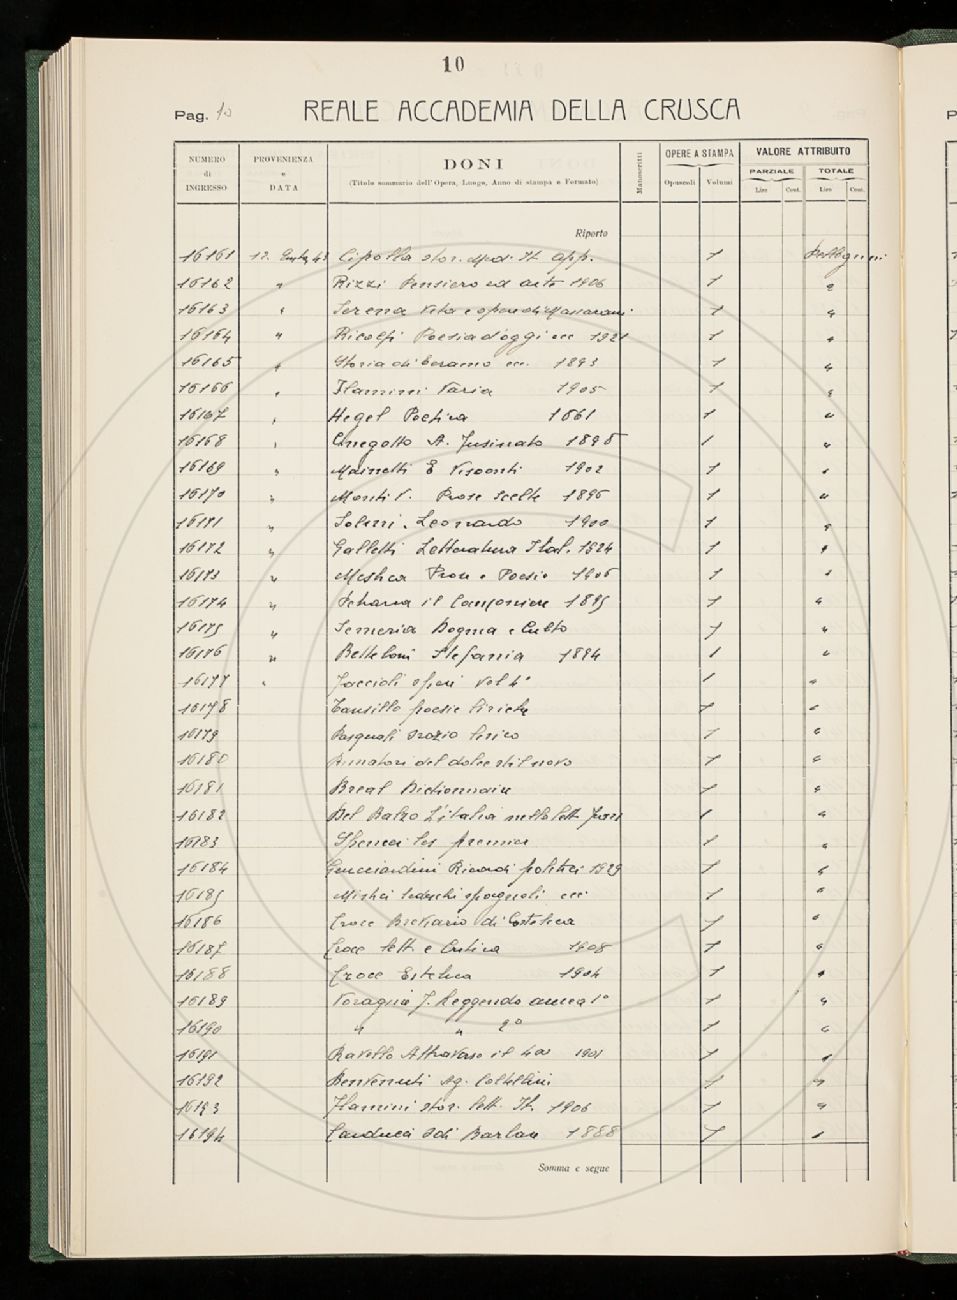 10
Pag. 10 REALE ACCADEMIA DELLA CRUSCA
NUMERO di INGRESSO
PROVENIENZA e DATA
DONI
(Titolo sommario dell'Opera, Luogo, Anno di stampa e Formato)
Manoscritti
OPERE A STAMPA
Opuscoli Volumi
VALORE ATTRIBUITO
PARZIALE TOTALE
Lire Cent. Lire Cent.
Riporto
16161 12. Cipolla stor. It app. 1
16162 " Rizzi Pensiero ed arte 1906 1 "
16163 " Serena Vita e opere di Massarani 1 "
16164 " Ricolfi Poesia d'oggi ecc 1921 1 "
16165 " Storia di ecc. 1893 1 "
16166 " Flamini Varia 1905 1 "
16167 " Hegel Poetica 1 "
16168 " Cinegotto A. Fusinato 1898 1 "
16169 " Mainetti E Visconti 1902 1 "
16170 " Monti V. Prose scelte 1896 1 "
16171 " Solmi. Leonardo 1900 1 "
16172 " Galletti Letteratura Ital. 1924 1 "
16173 " Mestica Prose e Poesie 1 "
16174 " il Canzoniere 1895 1 "
16175 " Semeria Dogma e Culto 1 "
16176 " Betteloni Stefania 1894 1 "
16177 " Jaccioli Vol 4° 1 "
16178 Tansillo poesie liriche 1 "
16179 Pasquali Orazio lirico 1 "
16180 Rimatori del dolce stil novo 1 "
16181 Breal Dictionnaire 1 "
16182 Del Balzo L'italia nella lett 1 "
16183 Spencer les premier 1 "
16184 Guicciardini Ricordi politici 1929 1 "
16185 Mistici tedeschi spagnoli ecc 1 "
16186 Croce Breviario di Estetica 1 "
16187 Croce lett e Critica 1908 1 "
16188 Croce Estetica 1904 1 "
16189 Voragine J. Leggenda aurea 1° 1 "
16190 " " 2° 1 "
16191 Ravello Attraverso il 1901 1 "
16192 Benvenuti Ag. Coltellini 1 "
16193 Flamini stor. lett. It 1906 1 "
16194 Carducci Odi Barbare 1888 1 "
Somma e segue